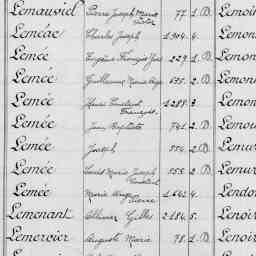 Lemausiel Pierre Joseph Marie 77. 1. D. Lemoin
Leméac Charles Joseph 1.904. 4. Lemon
Lemée Eugène François 229. 1. D. Lemon
Lemée Guillaume Marie 655. 2. D. Lemon
Lemée François 1.288. 3. Lemon
Lemée Jean Baptiste 741. 2. D. Lemou
Lemée Joseph 554. 2. D. Lemur
Lemée Louis Marie Joseph 555. 2. D. Lemur
Lemée Marie Ange Pierre 4. Lendo
Lemenant Gilles 2.184. 5. Lenoir
Lemercier Auguste Marie 78. 1. D. Lenoir